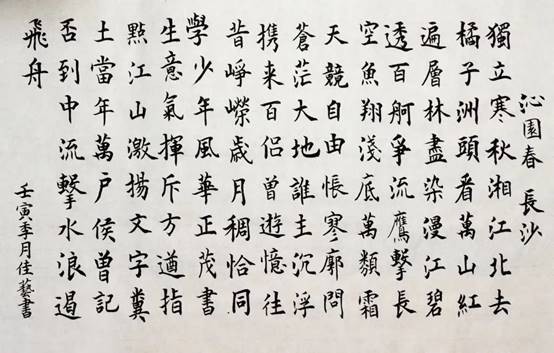 沁園春 長沙
獨立寒秋湘江北去
橘子洲頭看萬山紅
遍層林盡染漫江碧
透百舸爭流鷹擊長
空魚翔淺底萬類霜
天競自由悵寥廓問
蒼茫大地誰主沉浮
携来百侶曾遊憶往
昔崢嶸歲月稠恰同
學少年風華正茂書
生意氣揮斥方遒指
點江山激揚文字糞
土當年萬戶侯曾記
否到中流擊水浪遏
飛舟
壬寅季月佳藝書